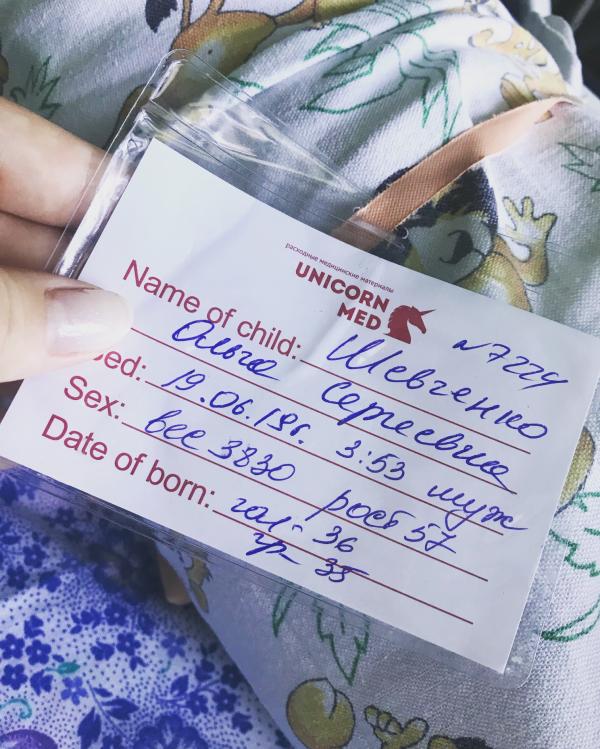 расходные медицинские материалы
UNICORN
MED
№7229
Name of child: Шевченко
Ольга Сергеевна
ed: 19.06.18г. 3:53 муж
Sex: вес 3830 рост 57
Date of born: гол- 36
гр 35